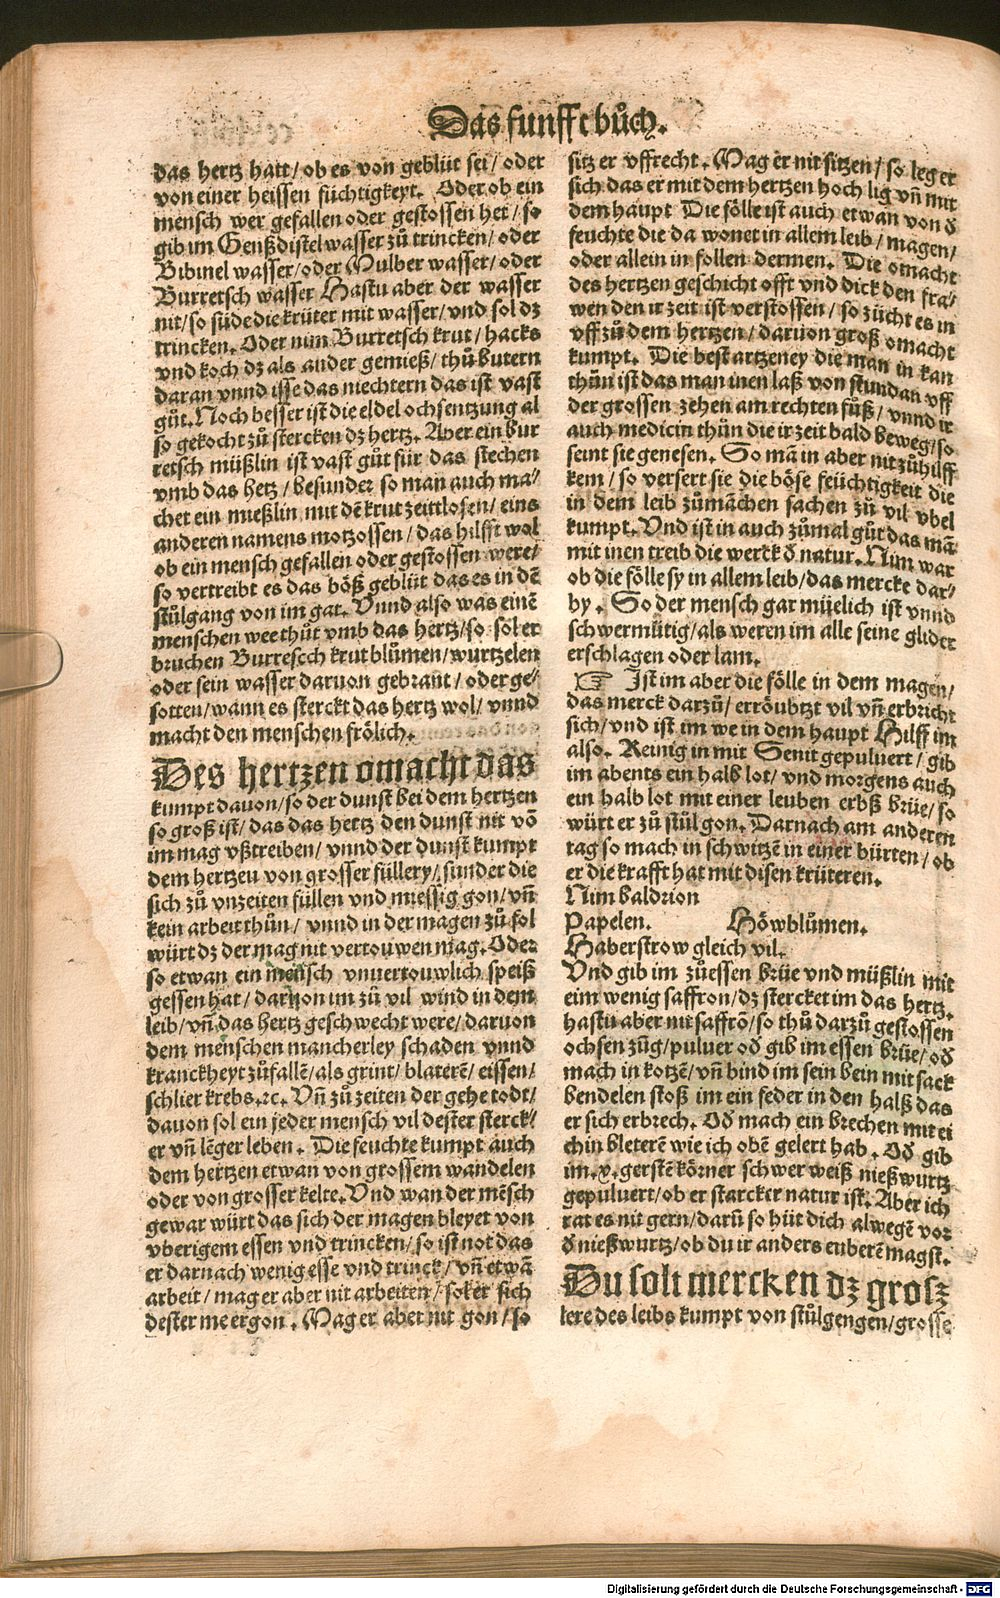 Das funfft bůch.
das hertz hatt/ ob es von geblüt sei/ oder
von einer heissen füchtigkeyt. Oder ob ein
mensch wer gefallen oder gestossen het/ so
gib im Genßdistel wasser zů trincken/ oder
Bibinel wasser/ oder Mulber wasser/ oder
Burretsch wasser Hastu aber der wasser
nit/ so süde die krüter mit wasser/ vnd sol dz
trincken. Oder nim Burretsch krut/ hacks
vnd koch dz als ander gemieß/ thů butern
daran vnnd isse das niechtern das ist vast
gůt. Noch besser ist die eldel ochsentzung al
so gekocht zů stercken dz hertz. Aber ein bur
retsch müßlin ist vast gůt für das stechen
vmb das hetz/ besunder so man auch ma⸗
chet ein mießlin mit dē krut zeittlosen/ eins
anderen namens motzossen/ das hilfft wol
ob ein mensch gefallen oder gestossen were/
so vertreibt es das böß geblüt das es in dē
stůlgang von im gat. Vnnd also was einē
menschen wee thůt vmb das hertz/ so sol er
bruchen Burrescch krut blůmen/ wurtzelen
oder sein wasser daruon gebrant/ oder ge⸗
sotten/ wann es sterckt das hertz wol/ vnnd
macht den menschen frölich.
Des hertzen omacht das
kumpt davon/ so der dunst bei dem hertzen
so groß ist/ das das hertz den dunst nit vō
im mag vßtreiben/ vnnd der dunst kumpt
dem hertzen von grosser füllery/ sunder die
sich zů vnzeiten füllen vnd miessig gon/ vñ
kein arbeit thůn/ vnnd in der magen zů fol
würt dz der mag nit vertouwen mag. Oder
so etwan ein mensch vnuertouwlich speiß
gessen hat/ daruon im zů vil wind in dem
leib/ vñ das hertz geschwecht were/ daruon
dem menschen mancherley schaden vnnd
kranckheyt zůfallē/ als grint/ blaterē/ eissen/
schlier krebs. ꝛc. Vñ zů zeiten der gehe todt/
davon sol ein jeder mensch vil dester sterck⸗
er vñ leger leben. Die feuchte kumpt auch
dem hertzen etwan von grossem wandelen
oder von grosser kelte. Vnd wan der mēsch
gewar würt das sich der magen bleyet von
vberigem essen vnd trincken/ so ist not das
er darnach wenig esse vnd trinck/ vñ etwā
arbeit/ mag er aber nit arbeiten/ so ker sich
dester me ergon. Mag er aber nit gon/ so
sitz er vffrecht. Mag er nit sitzen/ so leg er
sich das er mit dem hertzen hoch lig vñ mit
dem haupt Die fölle ist auch etwan von ď
feuchte die da wonet in allem leib/ magen/
oder allein in follen dermen. Die omacht
des hertzen geschicht offt vnd dick den fra⸗
wen den ir zeit ist verstossen/ so zücht es in
vff zů dem hertzen/ daruon groß omacht
kumpt. Die best artzeney die man in kan
thůn ist das man inen laß von stundan vff
der grossen zehen am rechten fůß/ vnnd ir
auch medicin thůn die ir zeit bald beweg/ so
seint sie genesen. So mā in aber nit zů hilff
kem/ so versert sie die böse feüchtigkeit die
in dem leib zůmāchen sachen zů vil vbel
kumpt. Vnd ist in auch zůmal gůt das mā
mit inen treib die werck ď natur. Nun war
ob die fölle sy in allem leib/ das mercke dar⸗
by. So der mensch gar müelich ist vnnd
schwermütig/ als weren im alle seine glider
erschlagen oder lam.
☞ Ist im aber die fölle in dem magen/
das merck darzů/ erröubtzt vil vñ erbricht
sich/ vnd ist im we in dem haupt Hilff im
also. Reinig in mit Senit gepuluert/ gib
im abents ein halb lot/ vnd morgens auch
ein halb lot mit einer leuben erbß brüe/ so
würt er zů stůl gon. Darnach am anderen
tag so mach in schwitzē in einer bürten/ ob
er die krafft hat mit disen krüteren.
Nim baldrion
Papelen. Höwblůmen.
Haberstrow gleich vil.
Vnd gib im zůessen brüe vnd müßlin mit
eim wenig saffron/ dz stercket im das hertz.
hastu aber nit saffrō/ so thů darzů gestossen
ochsen züg/ puluer oď gib im essen brüe/ oď
mach in kotzē/ vñ bind im sein bein mit sack
bendelen stoß im ein feder in den halß das
er sich erbrech. Oď mach ein brechen mit ei
chin bleterē wie ich obē gelert hab. Oď gib
im. x. gerstē körner schwer weiß nießwurtz
gepuluert/ ob er starcker natur ist. Aber ich
rat es nit gern/ darū so hüt dich alwegē vor
ď nießwurtz/ ob du ir anders enberē magst.
Du solt mercken dz grosz
lere des leibs kumpt von stůlgengen/ grosse
Digitalisierung gefördert durch die Deutsche Forschungsgemeinschaft - DFG